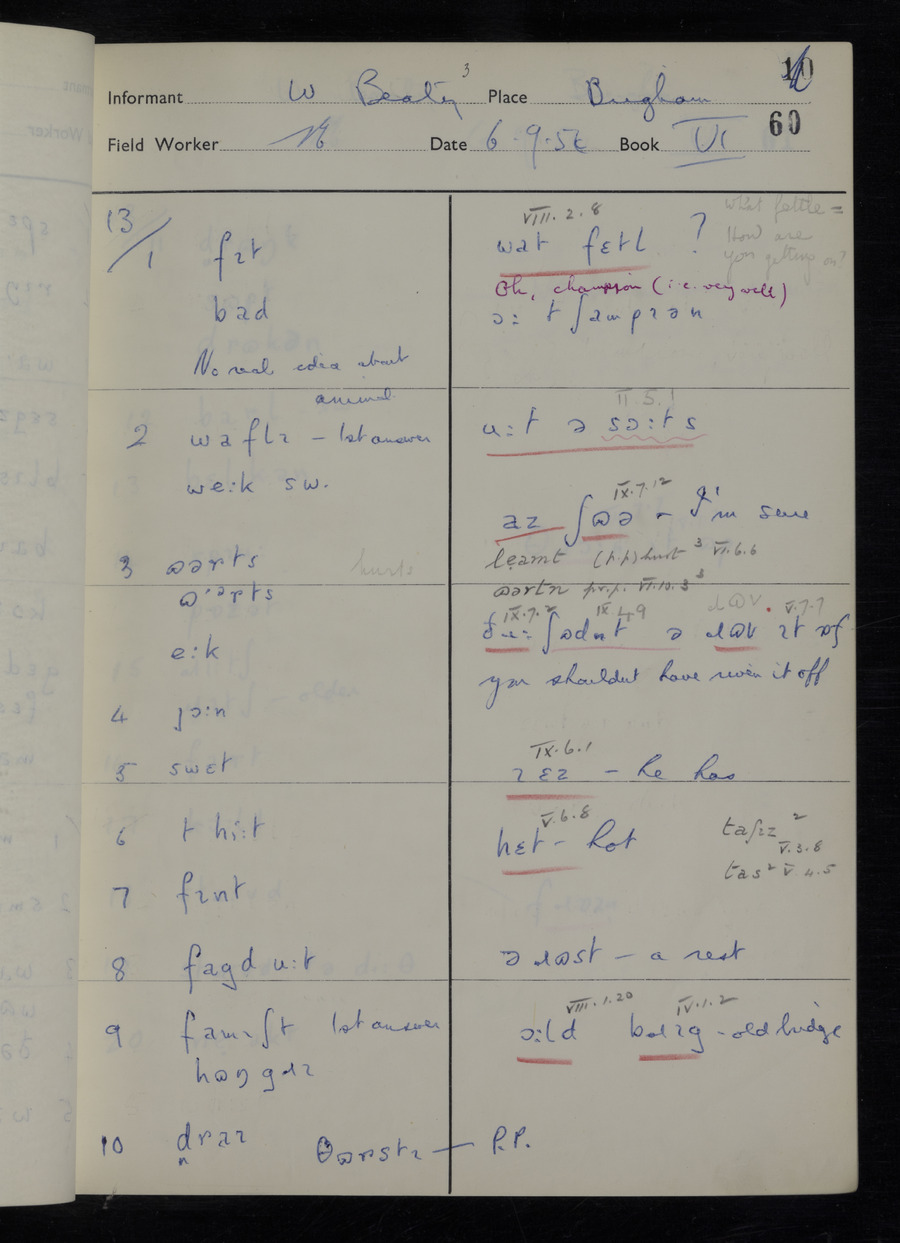 Informant W Beaty 3 Place Brigham 10
60
Field Worker Date 6.9.54 Book VI
13/1 fɪt
bad
No real idea about
animal
2 wafɫɪ – 1st answer
we:k sw.
3 ɷərts hurts
ɷ'ərts
e:k
4 ȷɔ:n
5 swɛt
6 t hi:t
7 fɪnt
8 fagd u:t
9 famɪʃt 1st answer
hɷŋgəɹ
10 draɪ θɷrstɪ — P.P.
VIII.2.8
wat fɛtl ? what fettle =
How are
you getting on?
Oh, champion (i.e. very well)
ɔ: tʃampɪən
II.5.1
u:t ə sɔ:ts
IX.7.12
az ʃɷə – I'm sure
learnt (p.p) hurt 3 VI.6.6
ɷərtn pr.p. VI.13.3 3
IX.7.2 IX.4.9 V.7.7
you shouldn't have riven it off
IX.6.1
ɪ ɛz – he has
V.6.8
hɛt – hot
V.3.8
V.4.5
ə ɹɷst – a rest
VIII.1.20 IV.1.2
ɔ:ld bɹɪg – old bridge